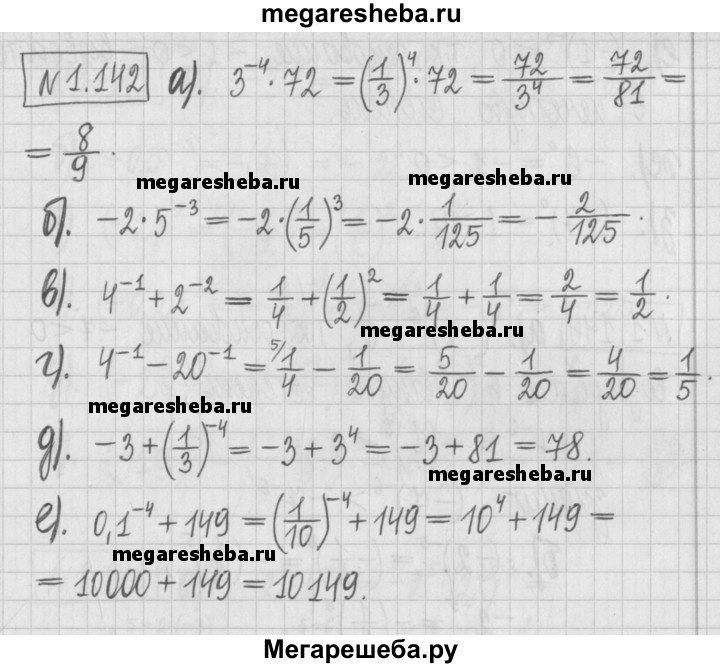 megaresheba.ru
№ 1.142 а). 3⁻⁴ · 72 = (1/3)⁴ · 72 = 72/3⁴ = 72/81 =
= 8/9.
megaresheba.ru megaresheba.ru
б). −2 · 5⁻³ = −2 · (1/5)³ = −2 · 1/125 = − 2/125.
в). 4⁻¹ + 2⁻² = 1/4 + (1/2)² = 1/4 + 1/4 = 2/4 = 1/2.
megaresheba.ru
г). 4⁻¹ − 20⁻¹ = ⁵⁾1/4 − 1/20 = 5/20 − 1/20 = 4/20 = 1/5.
megaresheba.ru
д). −3 + (1/3)⁻⁴ = −3 + 3⁴ = −3 + 81 = 78.
megaresheba.ru
е). 0,1⁻⁴ + 149 = (1/10)⁻⁴ + 149 = 10⁴ + 149 =
megaresheba.ru
= 10000 + 149 = 10149.
Мегарешеба.ру